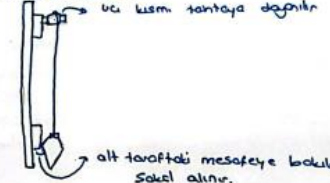 ucu kısmı tahtaya dayanılır
alt taraftaki mesafeye bakılır
Şakül alınır.